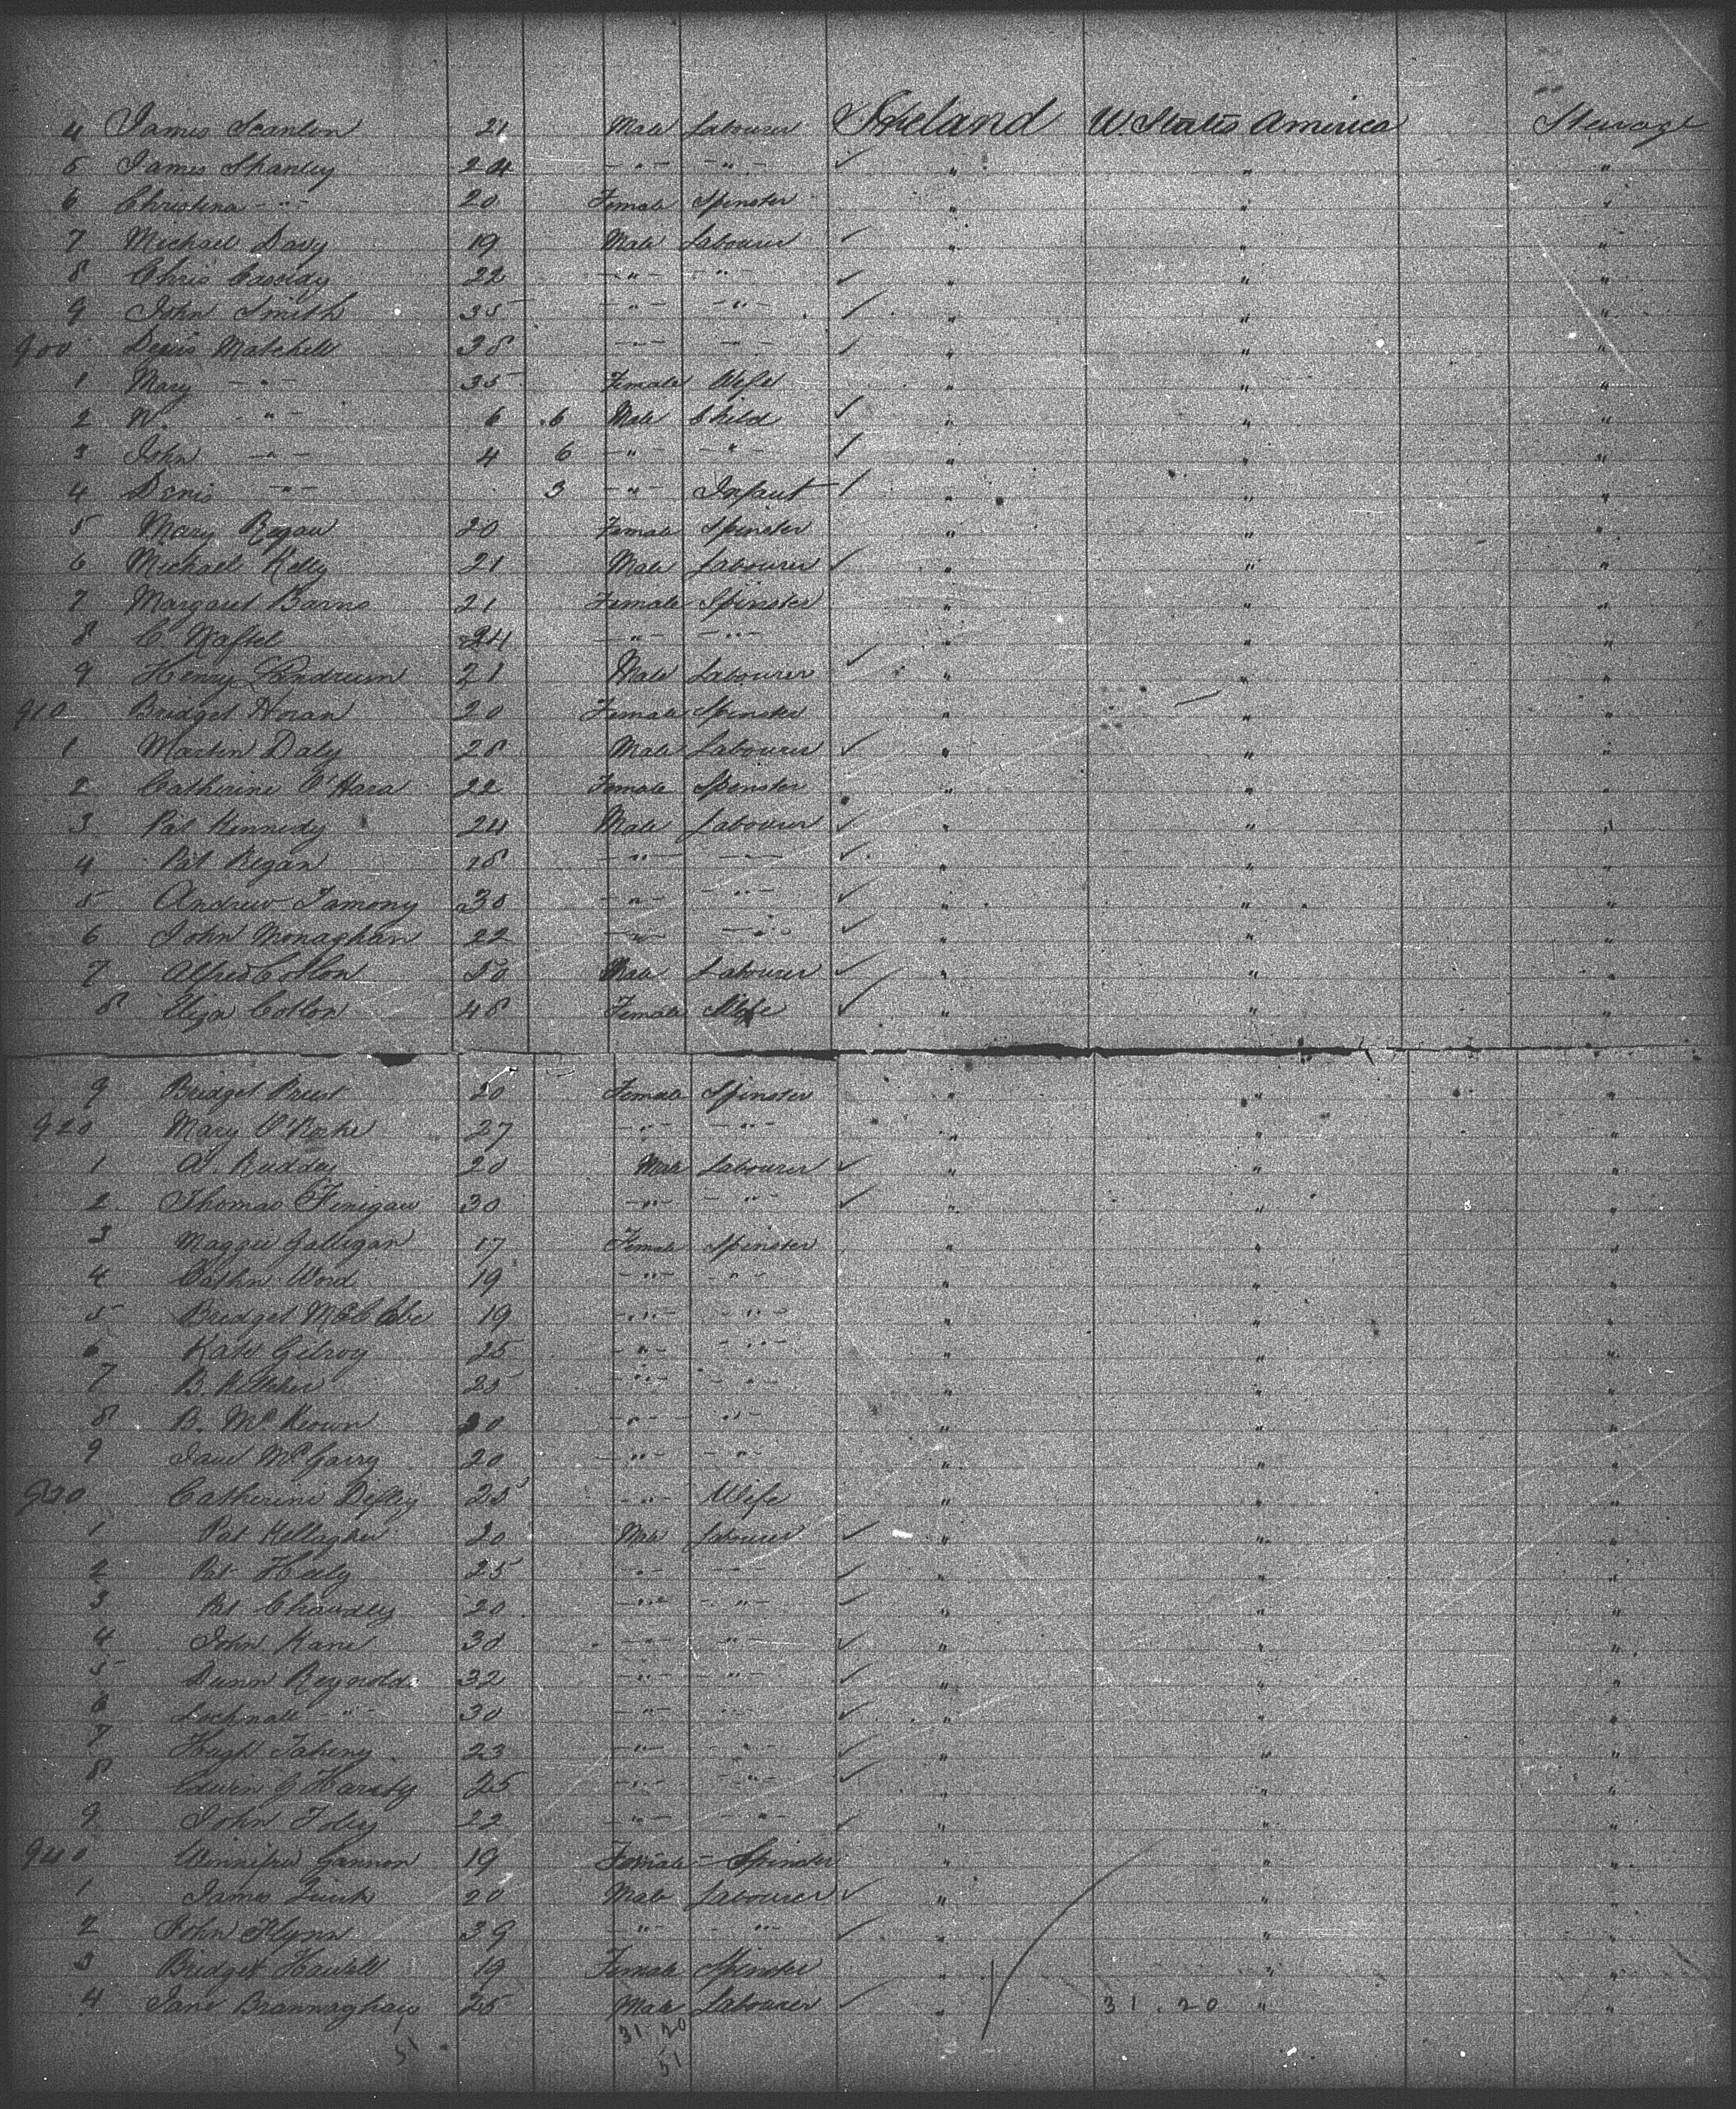 4 James Scanlon 21 Male Labourer Ireland U. States America Steerage
5 James Shanley 24 -"- -"- ✓ " " "
6 Christina -"- 20 Female Spinster " " "
7 Michael Davy 19 Male Labourer ✓ " " "
8 Chris Cassidy 22 -"- -"- ✓ " " "
9 John Smith 35 -"- -"- ✓ " " "
900 Denis Matchell 38 -"- -"- ✓ " " "
1 Mary -"- 35 Female Wife " " "
2 W. -"- 6 6 Male Child ✓ " " "
3 John -"- 4 6 -"- -"- ✓ " " "
4 Denis -"- 3 -"- Infant ✓ " " "
5 Mary Regan 20 Female Spinster " " "
6 Michael Kelly 21 Male Labourer ✓ " " "
7 Margaret Barns 21 Female Spinster " " "
8 C. Naftel 24 -"- -"- " " "
9 Henry Landrum 21 Male Labourer ✓ " " "
910 Bridget Horan 20 Female Spinster " " "
1 Martin Daly 28 Male Labourer ✓ " " "
2 Catherine O'Hara 22 Female Spinster " " "
3 Pat Kennedy 24 Male Labourer ✓ " " "
4 Pat Regan 18 -"- -"- ✓ " " "
5 Andrew Tamony 30 -"- -"- ✓ " " "
6 John Monaghan 22 -"- -"- ✓ " " "
7 Alfred Cotton 50 Male Labourer ✓ " " "
8 Eliza Cotton 48 Female Wife ✓ " " "
9 Bridget Priest 20 Female Spinster " " "
920 Mary O'Roke 27 -"- -"- " " "
1 A. Ruddy 20 Male Labourer ✓ " " "
2 Thomas Finigan 30 -"- -"- ✓ " " "
3 Maggie Galligan 17 Female Spinster " " "
4 Cathn Word 19 -"- -"- " " "
5 Bridget McCabe 19 -"- -"- " " "
6 Kate Gilroy 25 -"- -"- " " "
7 B. 25 -"- -"- " " "
8 B. McKeown 20 -"- -"- " " "
9 Jane McGarry 20 -"- -"- " " "
930 Catherine 25 -"- Wife " " "
1 Pat Kellagher 20 Male Labourer ✓ " " "
2 Pat Healy 25 -"- -"- ✓ " " "
3 Pat 20 -"- -"- ✓ " " "
4 John Kane 30 -"- -"- ✓ " " "
5 Reynolds 32 -"- -"- ✓ " " "
6 -"- 30 -"- -"- ✓ " " "
7 Hugh Taheny 23 -"- -"- ✓ " " "
8 Edwin G 25 -"- -"- ✓ " " "
9 John Foley 22 -"- -"- ✓ " " "
940 Winnifred Gannon 19 Female - Spinster " " "
1 James Quirk 20 Male Labourer ✓ " " "
2 John Flynn 39 -"- -"- ✓ " " "
3 Bridget 19 Female Spinster " " "
4 Jane Brannaghan 25 Male Labourer ✓ " 31.20 " "
51 31 20
51